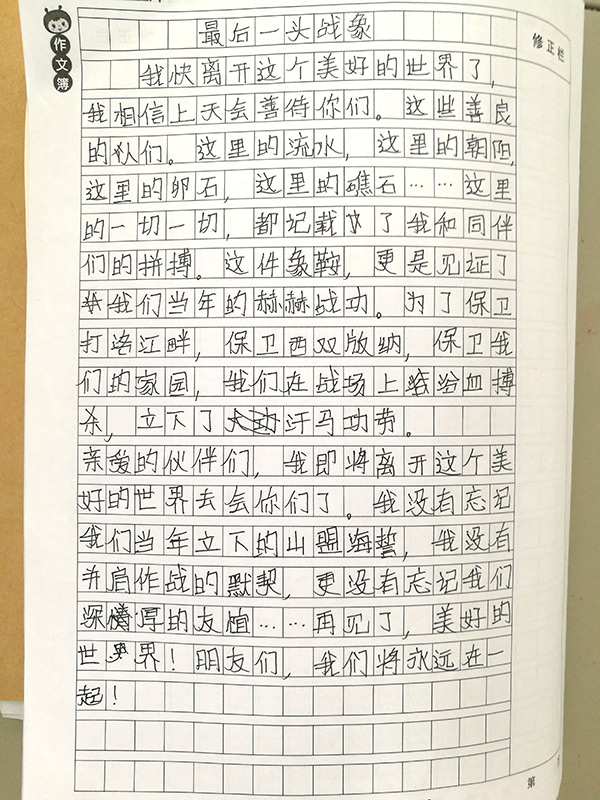 作文簿
修正栏
最后一头战象
我快离开这个美好的世界了，
我相信上天会善待你们。这些善良
的人们。这里的流水，这里的朝阳，
这里的卵石，这里的礁石……这里
的一切一切，都记载了我和同伴
们的拼搏。这件象鞍，更是见证了
我们当年的赫赫战功。为了保卫
打洛江畔，保卫西双版纳，保卫我
们的家园，我们在战场上浴血搏
杀，立下了汗马功劳。
亲爱的伙伴们，我即将离开这个美
好的世界去会你们了。我没有忘记
我们当年立下的山盟海誓，我没有
并肩作战的默契，更没有忘记我们
深厚的友谊……再见了，美好的
世界！朋友们，我们将永远在一
起！
第